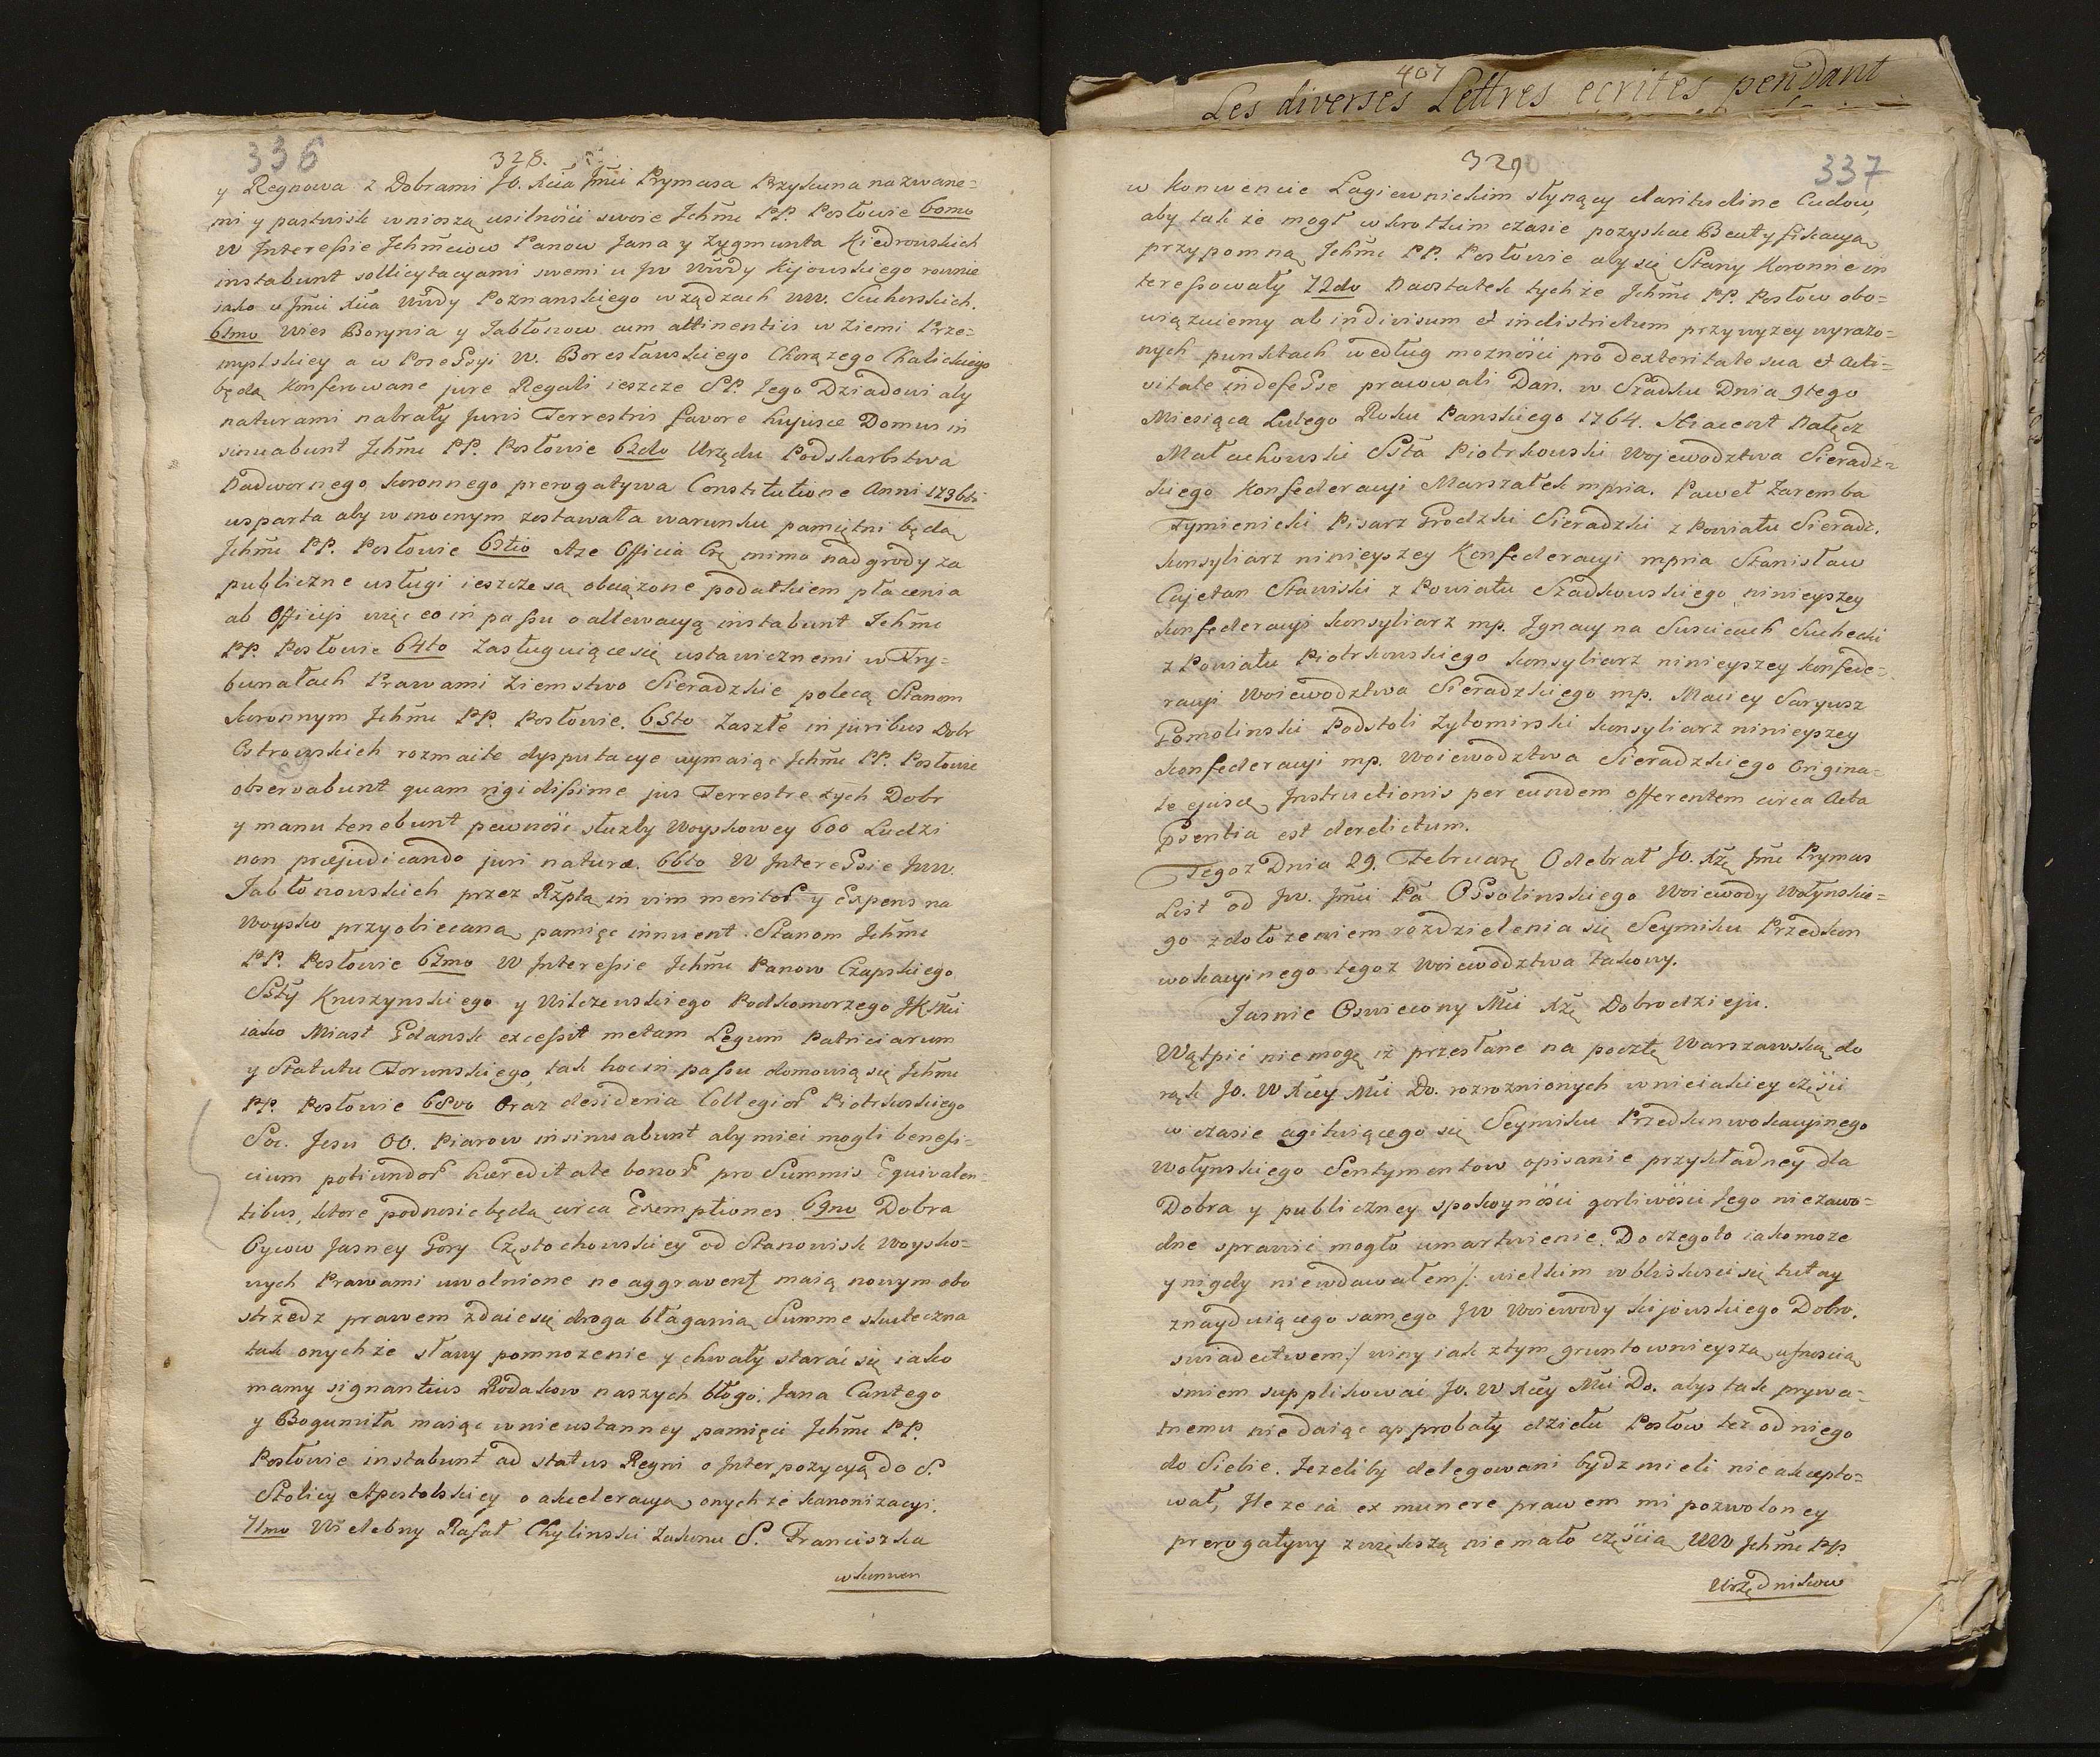 336
328.
y Regnowa z Dobrami Jo. Xcia Jmci Prymasa Przyluna nazwane=
mi y pastwisk wnioszą usilności swoie Ichmc PP. Posłowie 60mo
W Interessie Ichmciow Panow Jana y Zygmunta Kiedrowskich
instabunt sollicytacyami swemi u Jw Wwdy Kijowskiego rownie
iako u Jmci Xcia Wwdy Poznanskiego w ządzach WW. Suchorskich.
61mo Wies Borynia y Jabłonow cum attinentiis w Ziemi Prze=
mysłskiey a w Possessyi W. Boresławskiego Chorązego Chalickiego
będą konferowane jure Regali ieszcze SP. Jego Dziadowi aby
naturami nabrały Juris Terrestris favore hujusce Domus in
sinuabunt Ichmc PP. Posłowie 62do Urzędu Podskarbstwa
Nadwornego koronnego prerogatywa Constitutione Anni 1736ti
usparta aby w mocnym zostawała warunku pamiętni będą
Ichmc PP. Posłowie 63tio Aze Officia Crę mimo nadgrody za
publiczne usługi ieszcze są obciązone podatkiem płacenia
ab Officijs więc eo in passu o allewacyą instabunt Ichmc
PP. Posłowie 64to Zasługuiące się ustawicznemi w Try=
bunałach Prawami Ziemstwo Sieradzkie polecą Stanom
koronnym Ichmc PP. Posłowie. 65to Zaszłe in juribus Dobr
Ostrowskich rozmaite dysputacye uymaiąc Ichmc PP. Posłowie
observabunt quam rigidissime jus Terrestre tych Dobr
y manu tenebunt pewność służby Woyskowey 600 Ludzi
non præjudicando juri naturæ. 66to W Interessie JWW.
Jabłonowskich przez Rzplą in vim meritor y Expens na
Woysko przyobiecaną pamięc innuent Stanom Ichmc
PP. Posłowie 67mo W Interessie Ichmc Panow Czapskiego
Ssty Kruszynskiego y Wilczewskiego Podkomorzego JKMci
iako Miast Gdansk excessit metam Legum Patriciarum
y Statutu Torunskiego, tak hoc in passu domowią się Ichmc
PP. Posłowie 68vo Oraz desideria Collegior Piotrkoskiego
Soc. Jesu OO. Piarow insinuabunt aby mieć mogli benefi=
cium potiundor hæreditate bonor pro Summis Equivalen=
tibus, ktore podnosic będą circa Exemptiones 69no Dobra
Oycow Jasney Gory Częstochowskiey od Stanowisk Woysko=
wych Prawami uwolnione ne aggravent maią nowym obo
strzedz prawem zdaie się droga błagania Summe skuteczna
tak onych że sławy pomnozenie y chwały starać się iako
mamy signantius Rodakow naszych błogo: Jana Cantego
y Bogumiła maiąc w nieustanney pamięci Ichmc PP.
Posłowie instabunt ad status Regni o Interpozycyą do S.
Stolicy Apostolskiey o akceleracyą onychże kanonizacyi.
71mo Wielebny Rafał Chylinski Zakonu S. Franciszka
w konwen
407
Les diverses Lettres ecrites pendant
329
337
w Konwencie Lagiewnickim słynący claritudine Cudow,
aby tak że mogł w krotkim czasie pozyskac Beatyfikacyą
przypomną Ichmc PP. Posłowie aby się Stany Koronne in
teressowały 72do Naostatek tychże Ichmc PP. Posłow obo=
wiązuiemy ab indivisum et indistrictum przy wyzey wyrazo=
nych punktach według mozności pro dexteritate sua et acti=
vitate indefesse pracowali Dan. w Szadku Dnia 9tego
Miesiąca Lutego Roku Panskiego 1764. Hiacent Nałęcz
Małachowski Ssta Piotrkowski Wojewodztwa Sieradz=
kiego Konfederacyi Marszałek mpria. Paweł Zaremba
Tymieniecki Pisarz Grodzki Sieradzki z Powiatu Sieradz.
konsyliarz ninieyszey Konfederacyi mpria Stanisław
Cajetan Stawiski z Powiatu Szadkowskiego ninieyszey
konfederacyi konsyliarz mp. Ignacy na Suscicach Suchecki
z Powiatu Piotrkowskiego konsyliarz ninieyszey konfede=
racyi Woiewodztwa Sieradzkiego mp. Maciey Saryusz
Gomolinski Podstoli Zytomirski konsyliarz ninieyszey
konfederacyi mp. Woiewodztwa Sieradzkiego Origina=
le ejusce Instructionis per eundem offerentem circa Acta
psentia est derelictum.
Tegoz Dnia 29. Februarę Odebrał Jo. Xżę Jmc Prymas
List od Jw. Jmci Pa Ossolinskiego Woiewody Wołynskie=
go z dołozeniem rozdzielenia się Seymiku Przedkon
wokacyinego tegoz Woiewodztwa takowy.
Jasnie Oswiecony Mci Xżę Dobrodzieju.
Wątpić nie mogę iz przesłane na pocztę Warszawską do
rąk Jo. W Xcey Mci Do. rozroznionych w nieiakiey części
w czasie agituiącego się Seymiku Przedkonwokacyinego
Wołynskiego Sentymentow opisanie przykładney dla
Dobra y publiczney spokoyności gorliwości Jego niezawo=
dne sprawić mogło umartwienie. Do czegoto iako moze
y nigdy nie wdawałem /: wielkim w bliskosci się tutay
znayduiącego samego Jw Woiewody kijowskiego Dobro.
swiadectwem :/ winy iak z tym gruntownieyszą ufnoscią
smiem supplikować Jo. W Xcey Mci Do. abys tak prywa=
tnemu nie daiąc approbaty dziełu Posłow tez od niego
do Siebie. Jezeliby delegowani bydz mieli nie akcepto=
wał, Ile ze ia ex munere prawem mi pozwoloney
prerogatywy z większą nie mało częścią WW Ichmc PP.
Urzędnikow